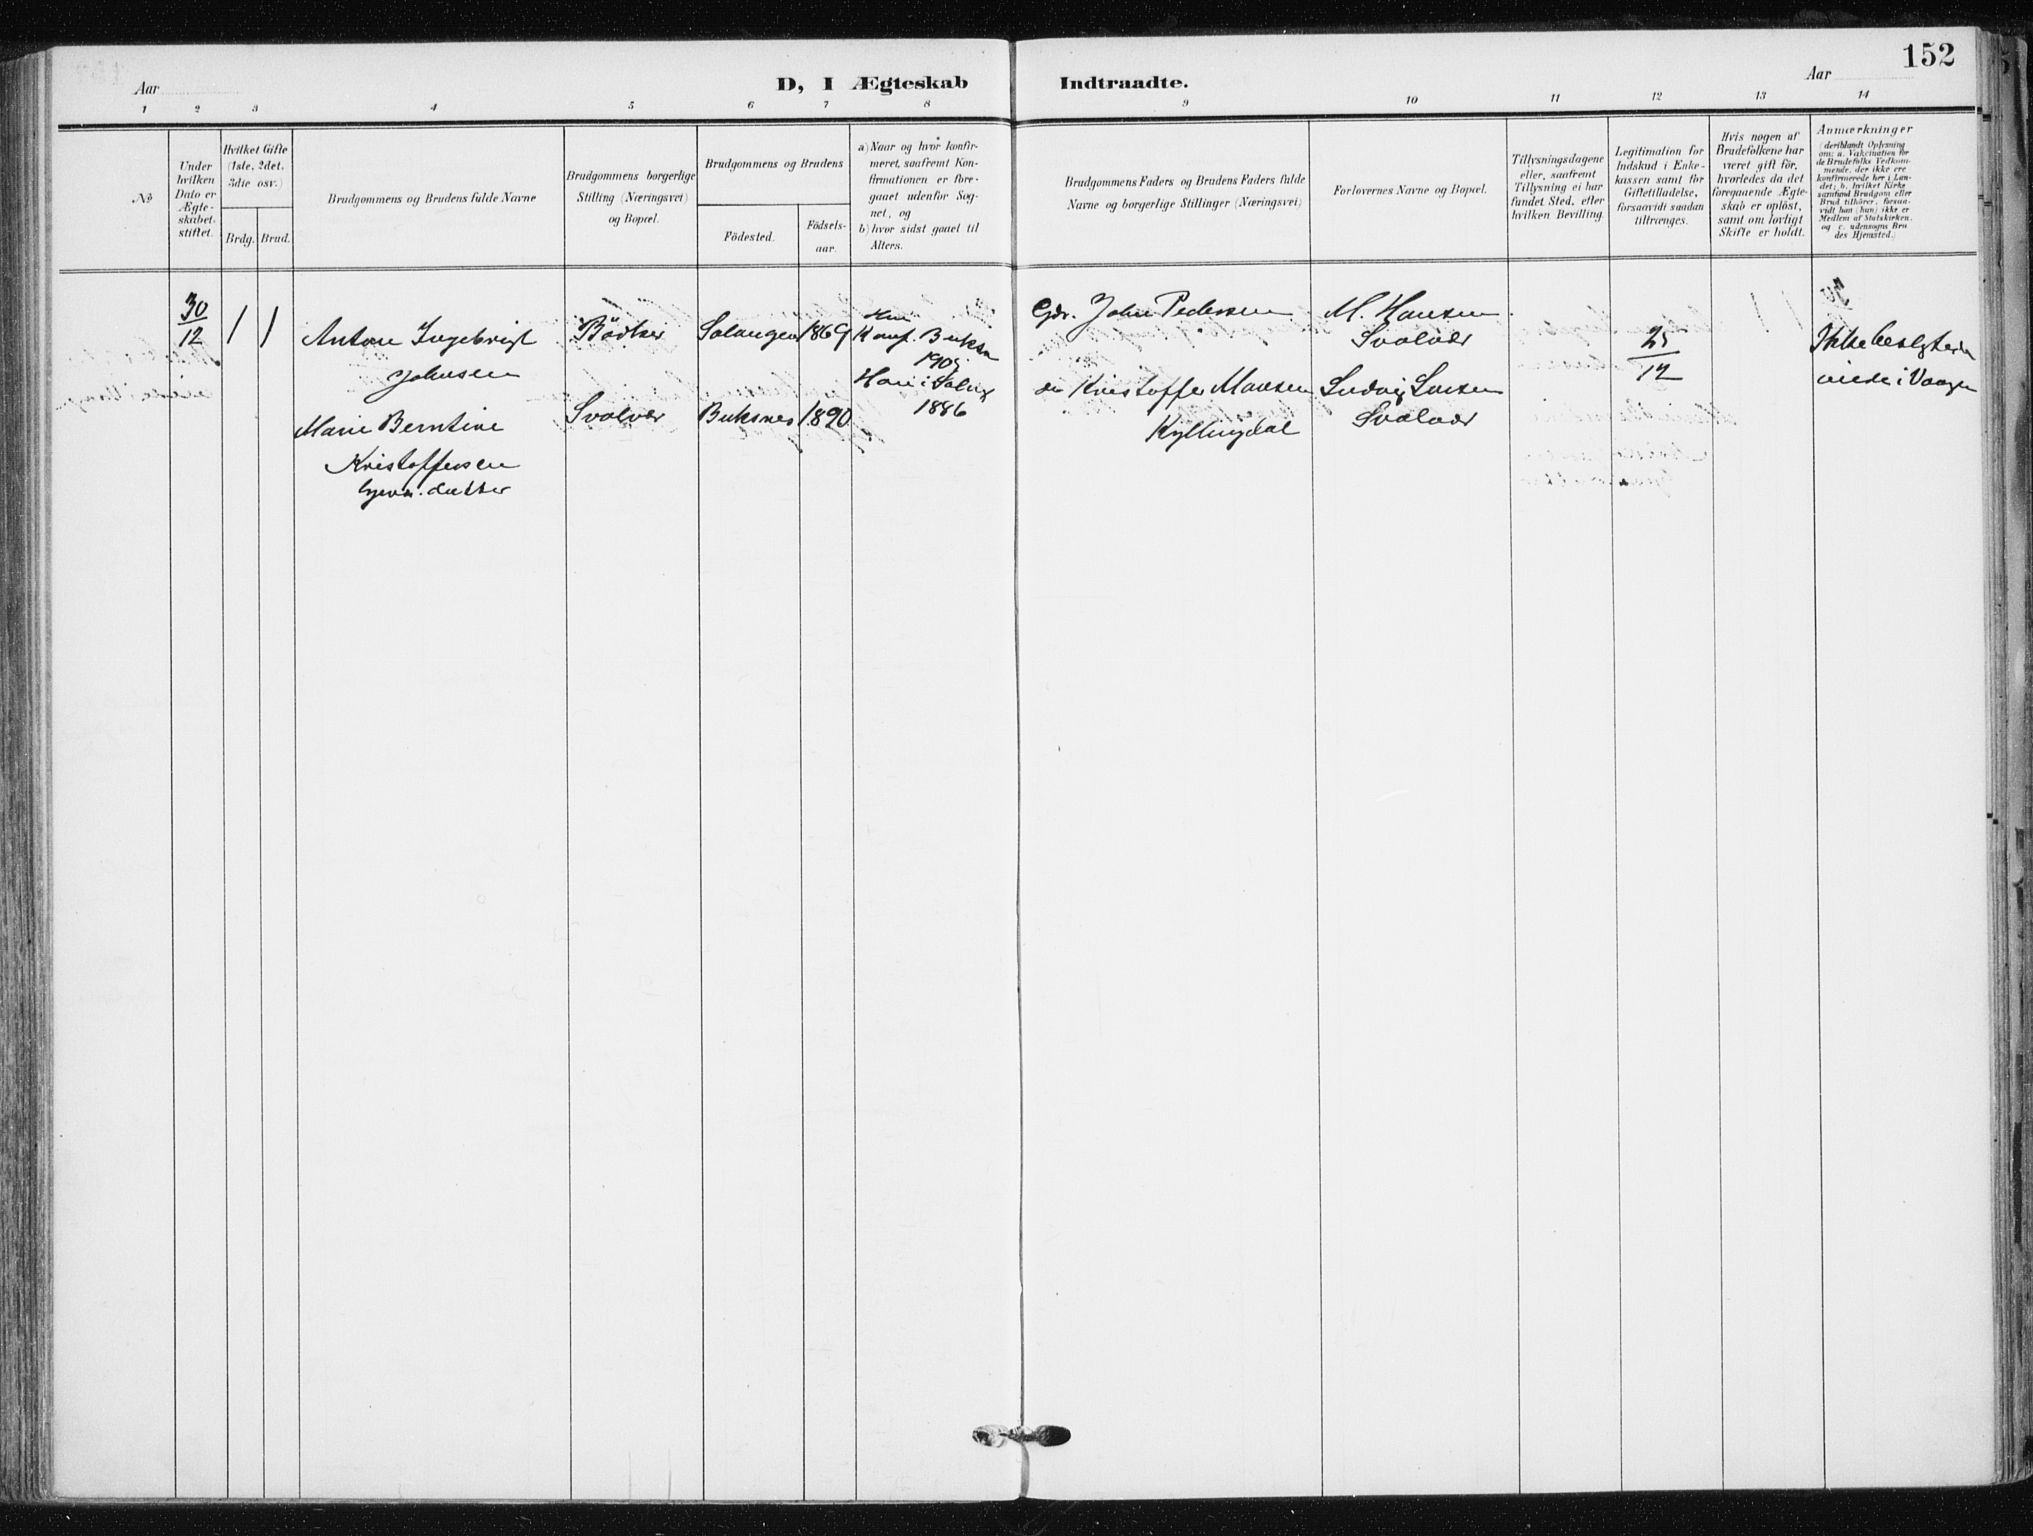 152
Aar
D, I Ægteskab Indtraadte.
Aar
1 2 3 4 5 6 7 8 9 10 11 12 13 14
No
Under
hvilken
Dato er
Ægte-
skabet
stiftet.
Hvilket Gifte
(1ste, 2det,
3die osv.)
Brdg. Brud.
Brudgommens og Brudens fulde Navne
Brudgommens borgerlige
Stilling (Næringsvei)
og Bopæl.
Brudgommens og Brudens
Födested.
Födsels-
aar.
a) Naar og hvor konfir-
meret, saafremt Kon-
firmationen er fore-
gaaet udenfor Sog-
net, og
b) hvor sidst gaaet til
Alters.
Brudgommens Faders og Brudens Faders fulde
Navne og borgerlige Stillinger (Næringsvei)
Forlovernes Navne og Bopæl.
Tillysningsdagene
eller, saafremt
Tillysning ei har
fundet Sted, efter
hvilken Bevilling.
Legitimation for
Indskud i Enke-
kassen samt for
Giftetilladelse,
forsaavidt saadan
tiltrænges.
Hvis nogen af
Brudefolkene har
været gift før,
hvorledes da det
foregaaende Ægte-
skab er oplöst,
samt om lovligt
Skifte er holdt.
Anmærkninger
(deriblandt Oplysning
om: a. Vakcination for
de Brudefolks Vedkom-
mende, der ikke ere
konfirmerede her i Lan-
det; b. hvilket Kirke-
samfund Brudgom eller
Brud tilhörer, forsaa-
vidt han (hun) ikke er
Medlem af Statskirken,
og c. udensogns Bru-
des Hjemsted.)
30
12
1 1
Antone Ingebrigt
Johnsen
Bödker
Salangen 1869
Hun
Konf. Buksn
Han i Salng
1886
Gdr. John Pedersen
M. Hansen
Svolvær
25
12
Ikke beslgtede
viede i Vaagen
Marie Berntine
Kristoffersen
Svolvær
Buksnes 1890
Kristoffer Hansen
Kyllingdal
Ludvig Larsen
Svolvær